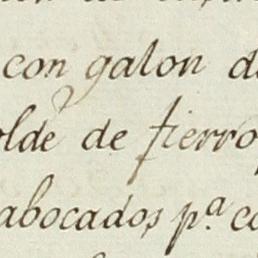 con galon d
olde de fierro
abocados p.ª c